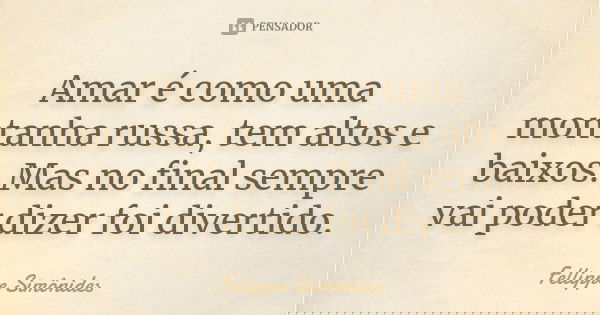 PENSADOR
Amar é como uma
montanha russa, tem altos e
baixos. Mas no final sempre
vai poder dizer foi divertido.
Fellippe Simônides